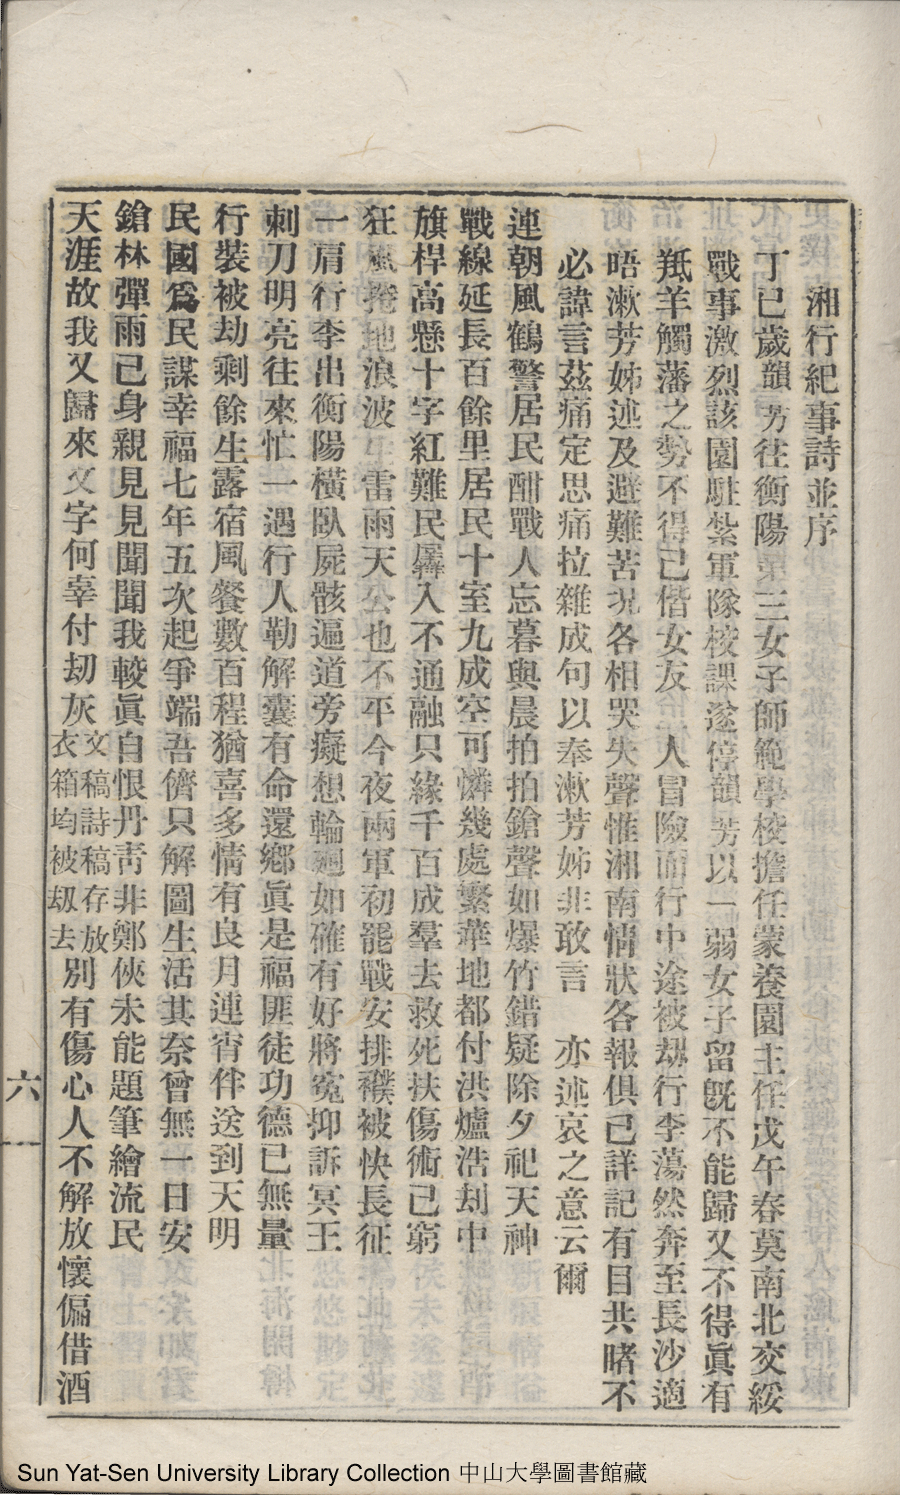 湘行紀事詩並序
丁巳歲韻芳往衡陽第三女子師範學校擔任蒙養園主任戊午春莫南北交綏
戰事激烈該園駐紮軍隊校課遂停韻芳以一弱女子留旣不能歸又不得眞有
羝羊觸藩之勢不得已偕女友 人冒險而行中途被刧行李蕩然奔至長沙適
晤漱芳姊述及避難苦况各相哭失聲惟湘南情狀各報俱已詳記有目共睹不
必諱言茲痛定思痛拉雜成句以奉漱芳姊非敢言 亦述哀之意云爾
連朝風鶴警居民酣戰人忘暮與晨拍拍鎗聲如爆竹錯疑除夕祀天神
戰線延長百餘里居民十室九成空可憐幾處繁華地都付洪爐浩刦中
旗桿高懸十字紅難民羼入不通融只緣千百成羣去救死扶傷術已窮
狂風捲地浪波生雷雨天公也不平今夜兩軍初罷戰安排襆被快長征
一肩行李出衡陽橫臥屍骸遍道旁癡想輪廻如確有好將寃抑訴冥王
刺刀明亮往來忙一遇行人勒解囊有命還鄉眞是福匪徒功德已無量
行裝被劫剩餘生露宿風餐數百程猶喜多情有良月連宵伴送到天明
民國爲民謀幸福七年五次起爭端吾儕只解圖生活其奈曾無一日安
鎗林彈雨已身親見見聞聞我較眞自恨丹靑非鄭俠未能題筆繪流民
天涯故我又歸來文字何辜付刧灰文稿詩稿存放衣箱均被刼去別有傷心人不解放懷偏借酒
六
Sun Yat-Sen University Library Collection 中山大學圖書館藏